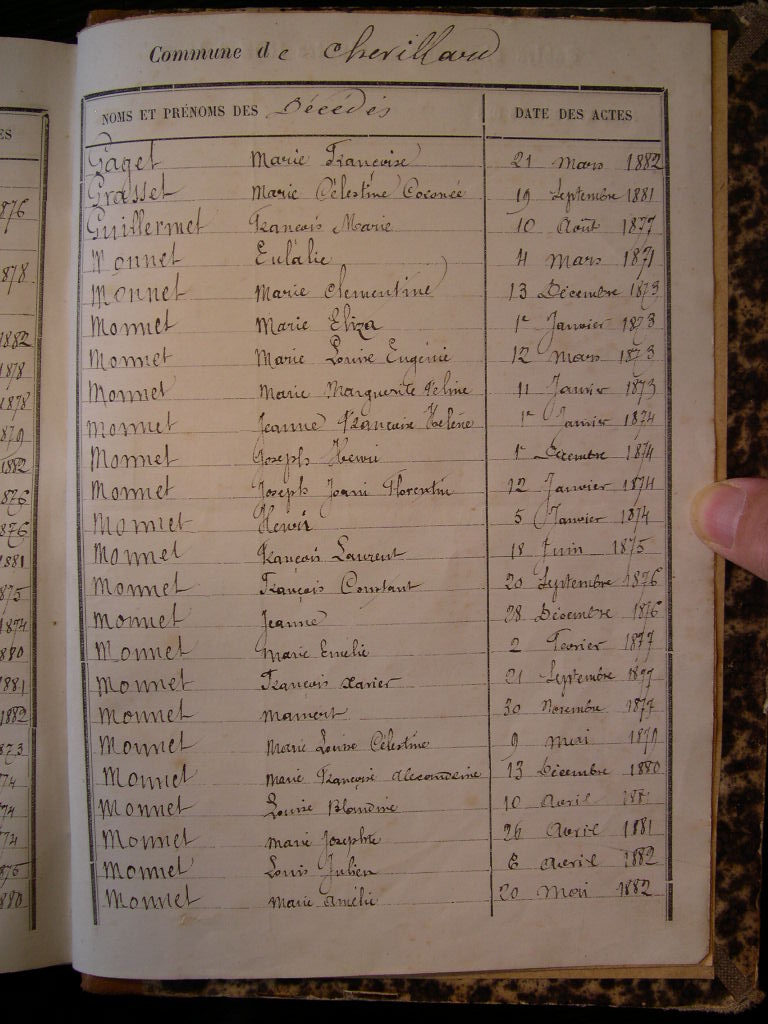 Commune de Chevillard
NOMS ET PRÉNOMS DES Décédés
DATE DES ACTES
Gaget Marie Françoise 21 Mars 1882
Grasset Marie Célestine 19 Septembre 1881
Guillermet François Marie 10 Août 1877
Monnet Eulalie 4 Mars 1871
Monnet Marie Clementine 13 Décembre 1873
Monnet Marie Eliza 1r Janvier 1873
Monnet Marie Louise Eugénie 12 Mars 1873
Monnet Marie Marguerite 11 Janvier 1873
Monnet Jeanne Françoise Helène 1r Janvier 1874
Monnet Joseph Henri 1r Decembre 1874
Monnet Joseph Florentin 12 Janvier 1874
Monnet Henri 5 Janvier 1874
Monnet François Laurent 18 Juin 1875
Monnet François Constant 20 Septembre 1876
Monnet Jeanne 28 Décembre 1876
Monnet Marie Emélie 2 Fevrier 1877
Monnet François Xavier 21 Septembre 1877
Monnet Mamert 30 Novembre 1877
Monnet Marie Louise Célestine 9 Mai 1879
Monnet Marie Françoise 13 Décembre 1880
Monnet Louise Blondine 10 Avril 1881
Monnet Marie Josephte 26 Avril 1881
Monnet Louis Julien 8 Avril 1882
Monnet Marie Amélie 20 Mai 1882